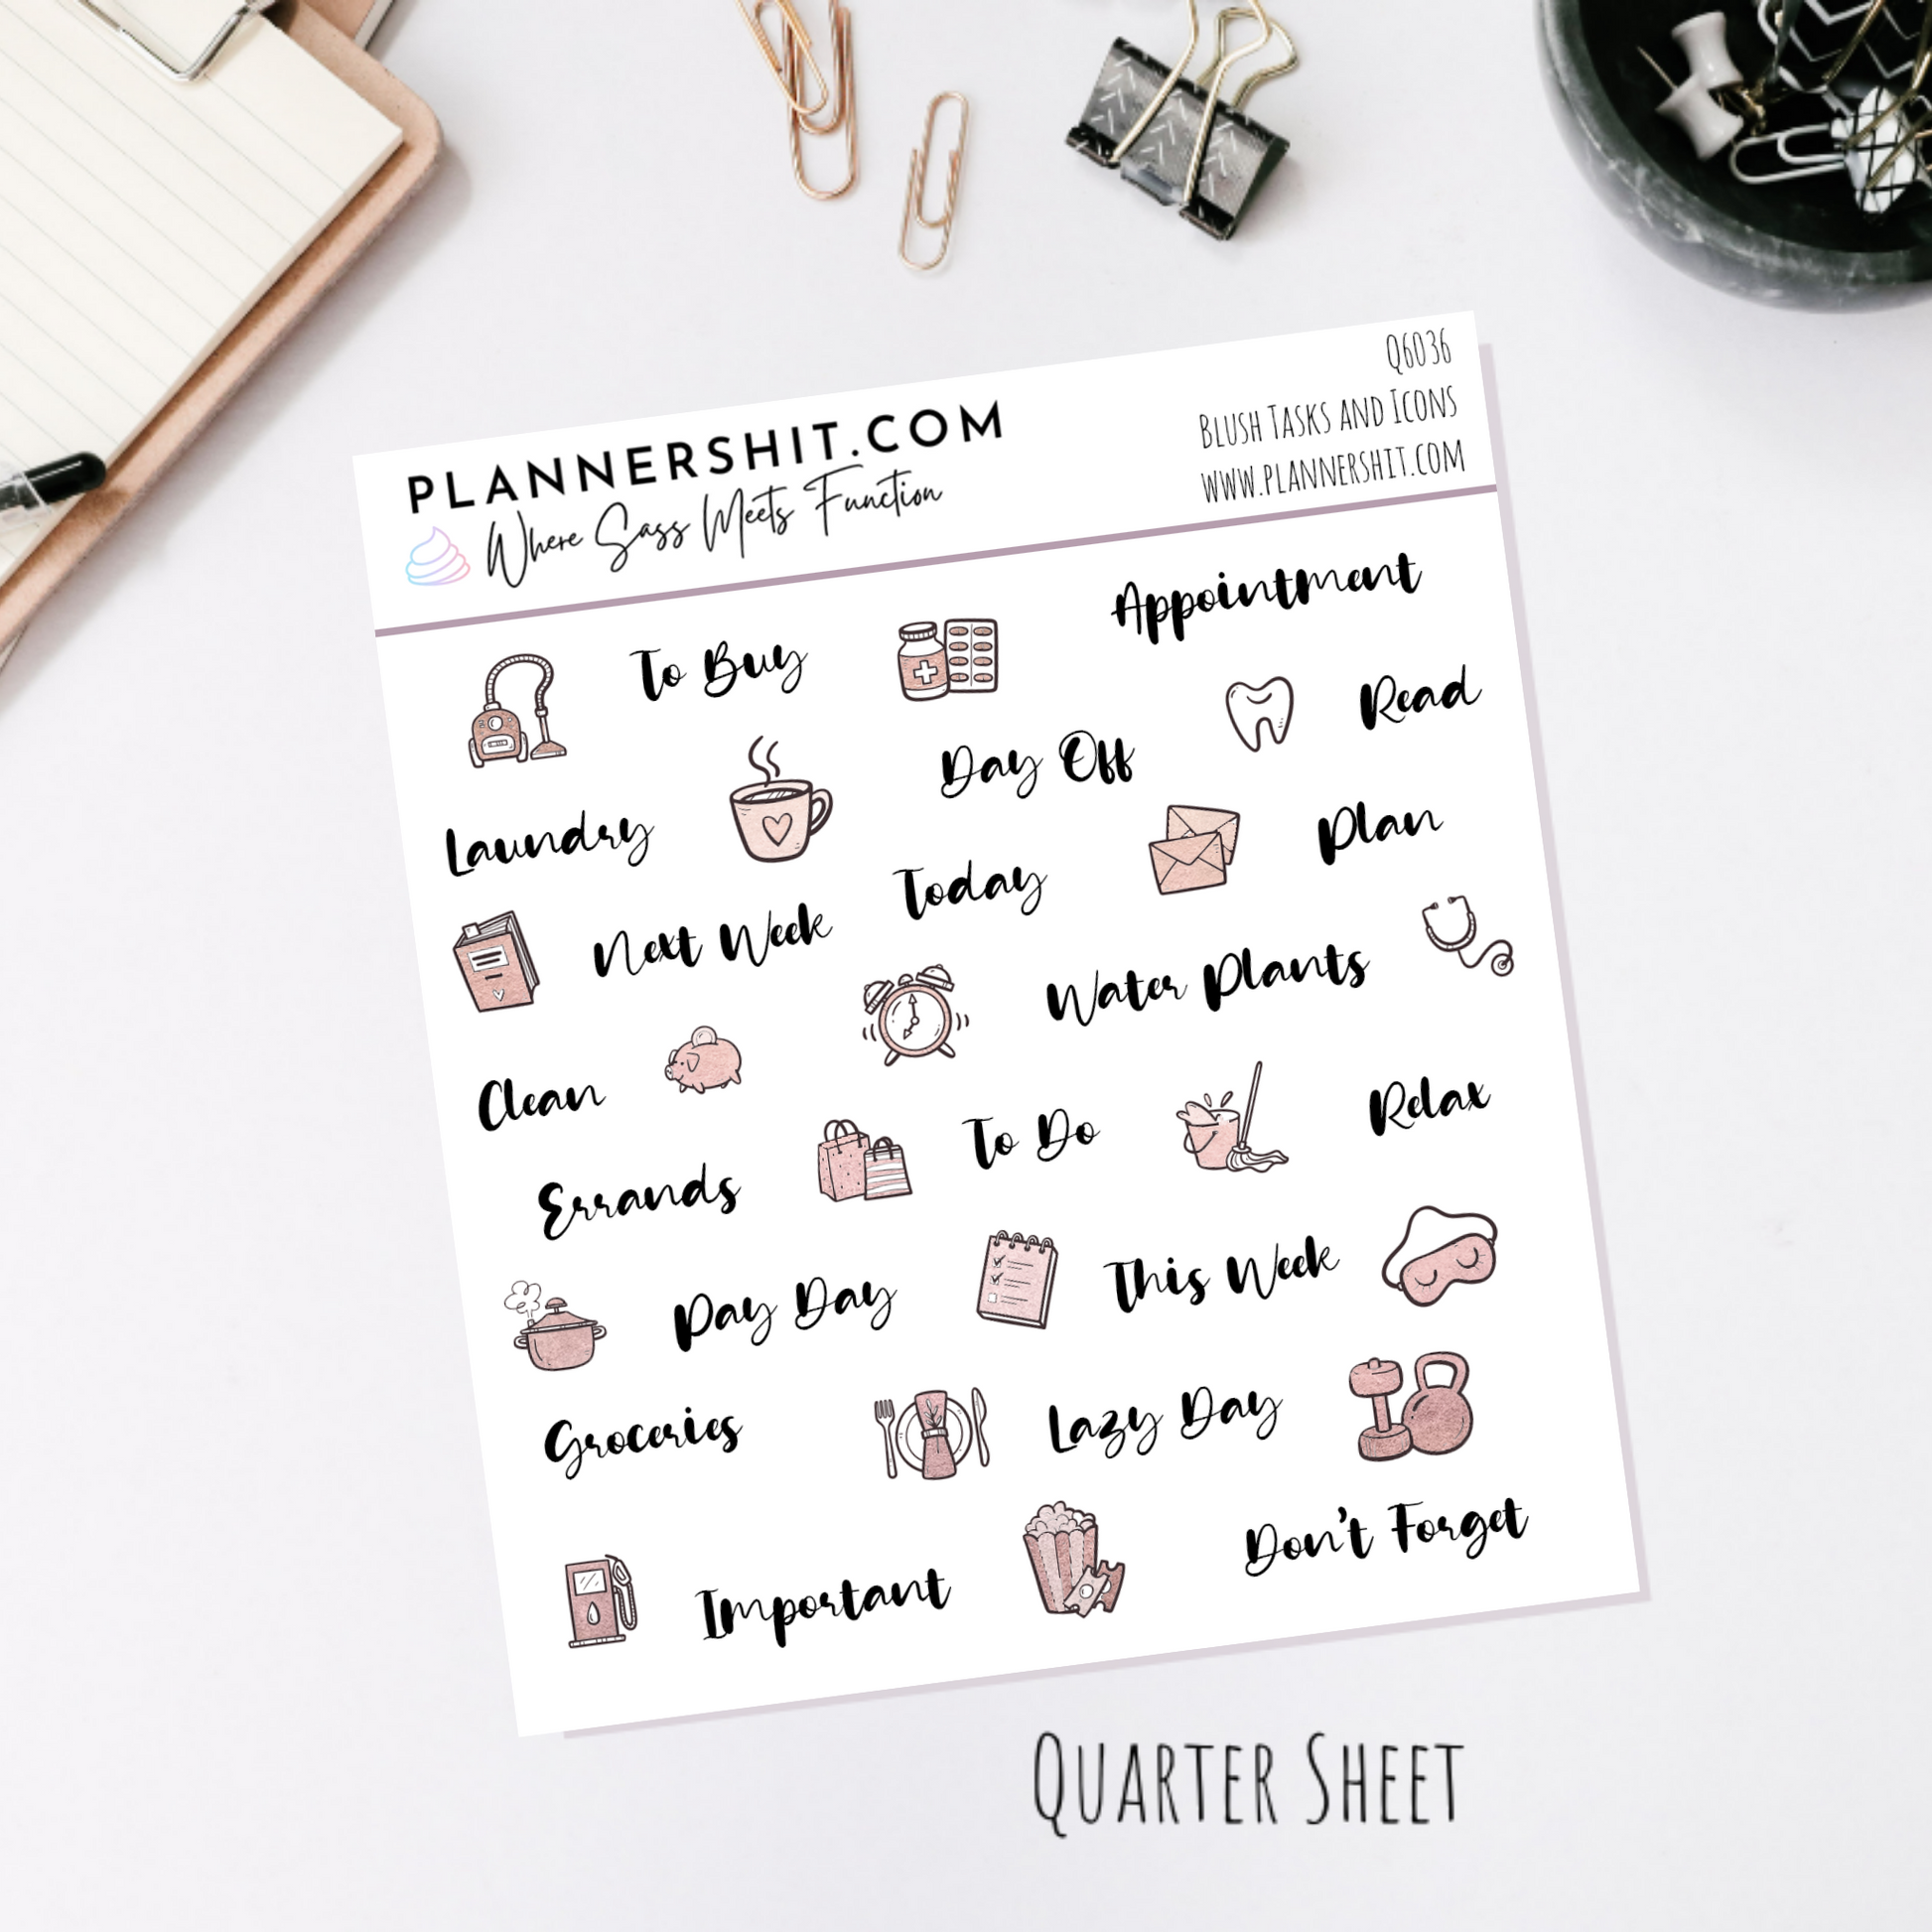 PLANNERSHIT.COM
Where Sass Meets Function
Q6036
Blush Tasks and Icons
www.plannershit.com
To Buy
Appointment
Day Off
Read
Laundry
Today
Plan
Next Week
Water Plants
Clean
To Do
Relax
Errands
Pay Day
This Week
Groceries
Lazy Day
Important
Don't Forget
Quarter Sheet